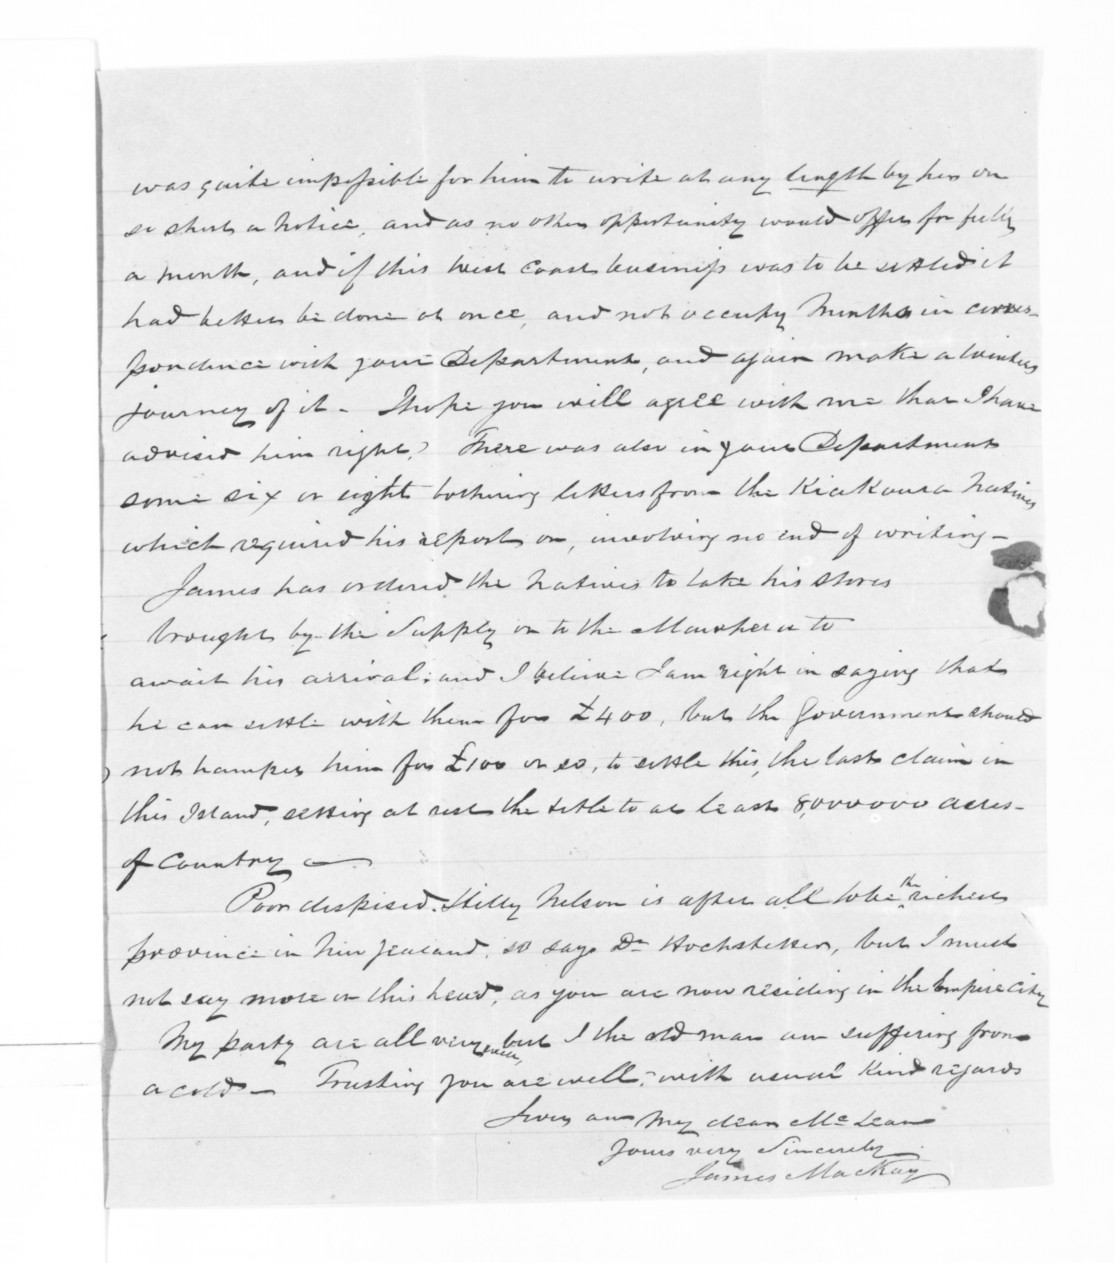 was quite impossible for him to write at any length by her on
so short a notice, and as no other opportunity would offer for fully
a month, and if this West Coast business was to be settled it
had better be done at once, and not occupy Months in corres-
pondence with your Department, and again make a winters
journey of it - I hope you will agree with me that I have
advised him right? There was also in your Department
some six or eight bothering letters from the Kiakoura Natives
which required his report on, involving no end of writing -
James has ordered the Natives to take his stores
brought by the Supply on to the to
await his arrival; and I believe I am right in saying that
he can settle with them for £400, but the Government should
not hamper him for £100 or so, to settle this, the last claim in
this Island, setting at rest the title to at least 8,000000 acres -
of Country -
Poor despised Hilly Nelson is after all to be the richest
province in New Zealand, so says Dr Hochstetter, but I must
not say more on this head, as you are now residing in the Empire City
My party are all very well, but I the old man am suffering from
a cold - Trusting you are well, with usual Kind regards
I am My dear McLean
Yours very Sincerely
James MacKay